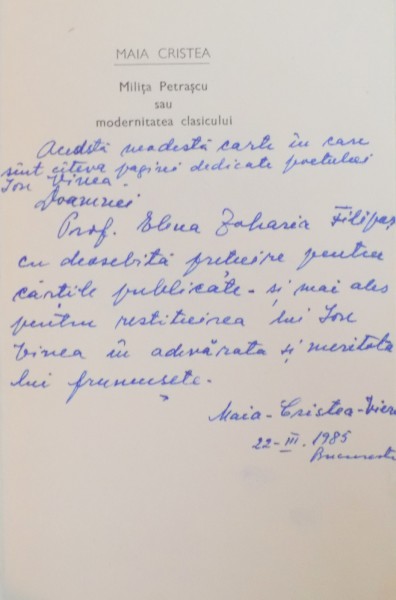 MAIA CRISTEA
Milița Petrașcu
sau
modernitatea clasicului
Această modestă carte în care
sînt cîteva pagini dedicate poetului
Ion Vinea.
Doamnei
Prof. Elena Zaharia Filipaș
cu deosebită prețuire pentru
cărțile publicate - și mai ales
pentru restituirea lui Ion
Vinea în adevărata și meritata
lui frumusețe.
Maia-Cristea-Vieru
22-III.1985
București